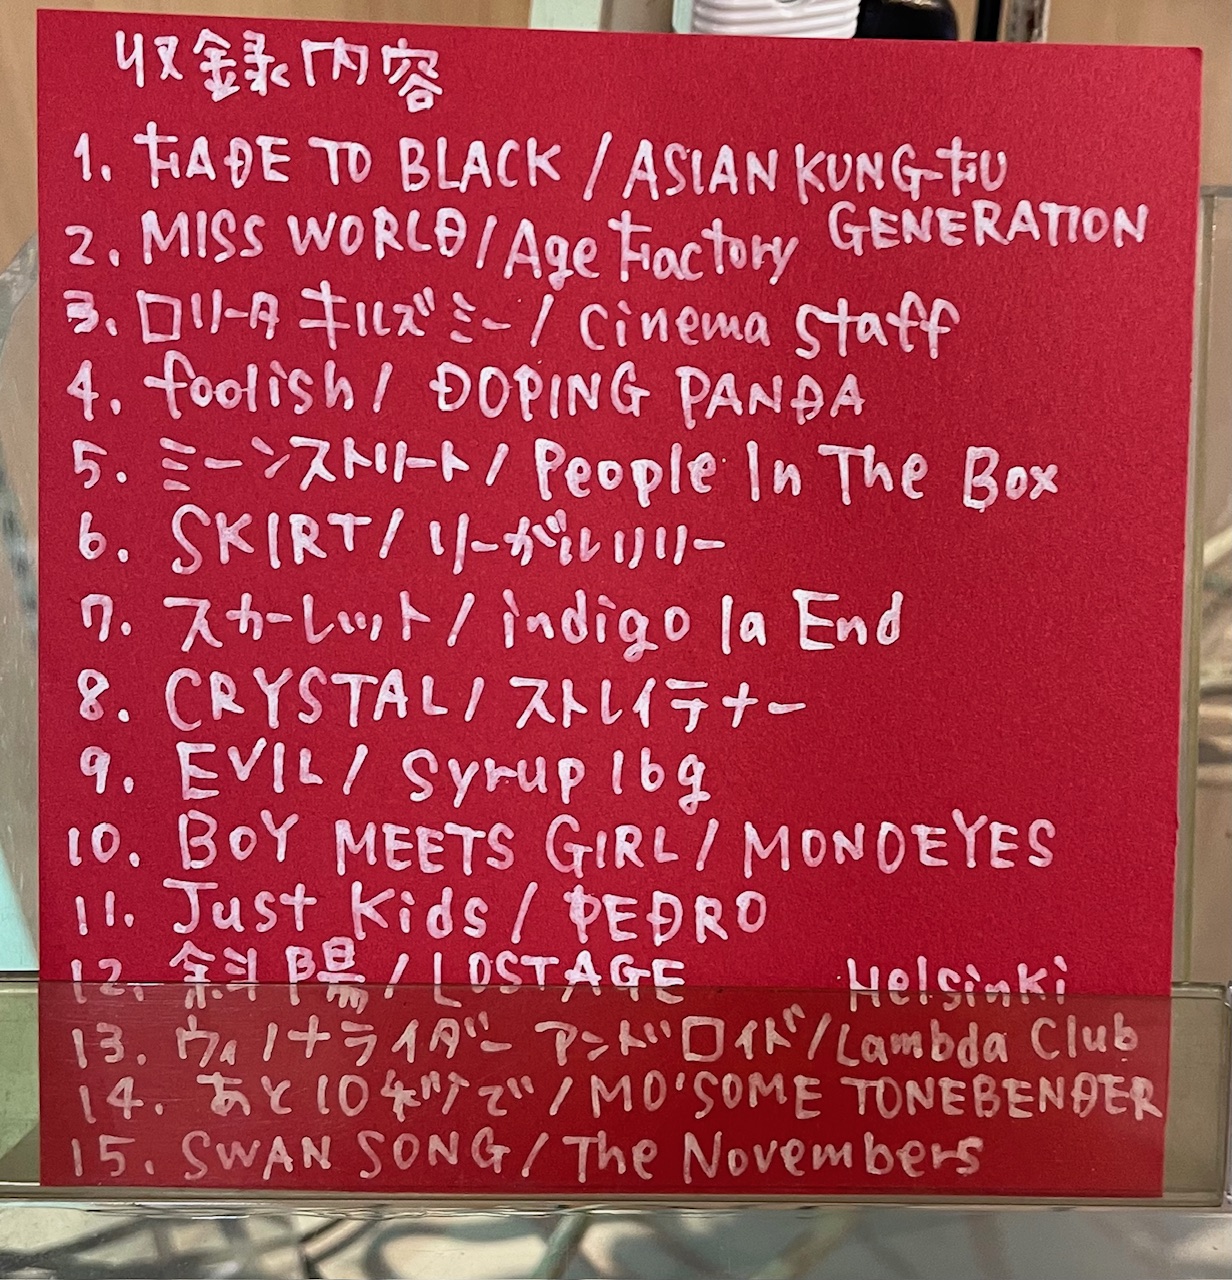 収録内容
1. FADE TO BLACK / ASIAN KUNG-FU
GENERATION
2. MISS WORLD / Age Factory
3. ロリータ キルズ ミー / cinema staff
4. foolish / DOPING PANDA
5. ミーンストリート / People In The Box
6. SKIRT / リーガルリリー
7. スカーレット / indigo la End
8. CRYSTAL / ストレイテナー
9. EVIL / syrup16g
10. BOY MEETS GIRL / MONOEYES
11. Just Kids / PEDRO
12. 斜陽 / LOSTAGE
Helsinki
13. ウィノナライダー アンドロイド / Lambda Club
14. あと10秒で / MO'SOME TONEBENDER
15. SWAN SONG / The Novembers